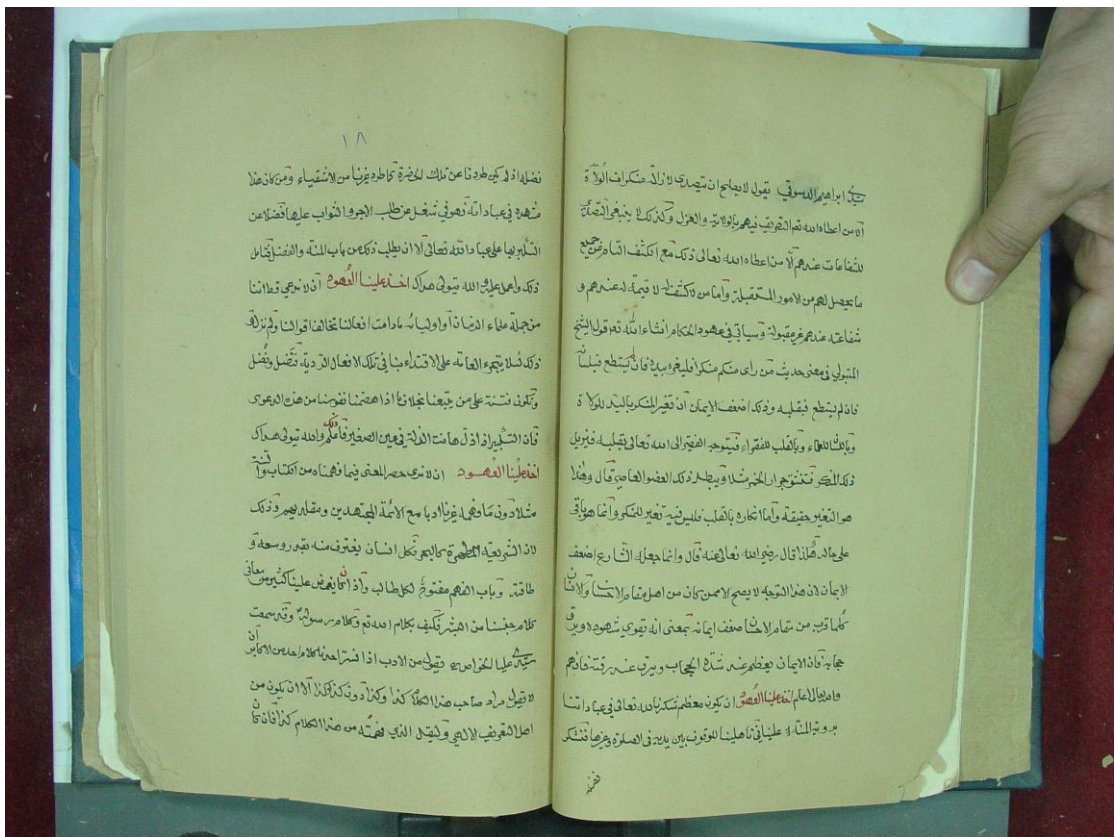 سيدي ابراهيم الدسوقي يقول لا يصلح ان يتصدى لازالة منكرات الولاة
الا من اعطاه الله تعالى التصريف فيهم بالولاية والعزل وكذلك لا ينبغي التصدر
للشفاعات عندهم الا من اعطاه الله تعالى ذلك مع الكشف التام عن جميع
ما يحصل لهم من الامور المستقبلة واما من لا كشف له لا قيمة له عندهم و
شفاعته عندهم غير مقبولة وسياتي في عهود الحكام انشاء الله تعم قول الشيخ
المتبولي في معنى حديث من راى منكم منكرا فليغيره بيده فان لم يستطع فبلسانه
فان لم يستطع فبقلبه وذلك اضعف الايمان ان تغير المنكر باليد للولاة
وباللسان للعلماء وبالقلب للفقراء فيتوجه الفقير الى الله تعالى بقلبه فيزيل
ذلك المنكر فتنشق جرار الخمر مثلا ويبطل ذلك العضو العاصي قال وهذا
هو التغير حقيقة واما انكاره بالقلب فليس فيه تغير للمنكر وانما هو باقي
على حاله هكذا قال رضي الله تعالى عنه قال وانما جعله الشارع اضعف
الايمان لان هذا التوجه لا يصح الا ممن كان من اهل مقام الاحسان والانسان
كلما قرب من مقام الاحسان ضعف ايمانه بمعنى انه تقوى شهوده ويرق
حجابه فان الايمان يعظم عند شدة الحجاب ويرق عند رقته فافهم
والله تعالى اعلم اخذ علينا العهود ان يكون معظم شكرنا لله تعالى في عباداتنا
برؤية المنة له علينا في تاهيلنا للوقوف بين يديه في الصلوة وغيرها فنشكر
فضله
١٨
فضله اذ لم يكن طردنا عن تلك الحضرة كما طرد غيرنا من الاشقياء ومن كان هذا
مشهده في عباداته فهو في شغل عن طلب الاجر والثواب عليها فضلا عن
التكبر بها على عباد الله تعالى الا ان يطلب ذلك من باب المنة والفضل فتامل
ذلك واعمل عليه والله يتولى هداك اخذ علينا العهود ان لا ندعي قط اننا
من جملة علماء الزمان او اوليائه ما دامت افعالنا تخالف اقوالنا ولم نزل
ذلك لئلا يتجرء العامة على الاقتداء بنا في تلك الافعال الردية فنضل ونضل
ونكون فتنة على من يتبعنا بخلاف ما اذا هضمنا نفوسنا من هذه الدعوى
فان الكبير اذا زل هانت الزلة في عين الصغير فاعلم ذلك والله يتولى هداك
اخذ علينا العهود ان لا نرى حصر المعنى فيما فهمناه من الكتاب والسنة
مثلا دون ما فهمه غيرنا ادبا مع الائمة المجتهدين ومقلديهم وذلك
لان الشريعة المطهرة كالبحر فكل انسان يغترف منه بقدر وسعه و
طاقته وباب الفهم مفتوح لكل طالب واذا كان يغمض علينا كثير من معاني
كلام جنسنا من البشر فكيف بكلام الله تع وكلام رسوله وقد سمعت
سيدي عليا الخواص يقول من الادب اذا فسر احدنا كلام احد من الاكابر ان
لا يقول مراد صاحب هذا الكلام كذا وكذا دون كذا وكذا الا ان يكون من
اهل التعريف الالهي وليقل الذي فهمته من هذا الكلام كذا فان كان